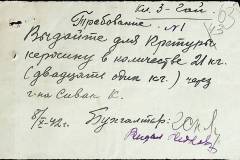 кл. 3-
Требование №1
Выдайте для
керосину в количестве 21 кг.
(двадцать один кг.) через
г-на Сивак К.
8/V-42г. Бухгалтер: